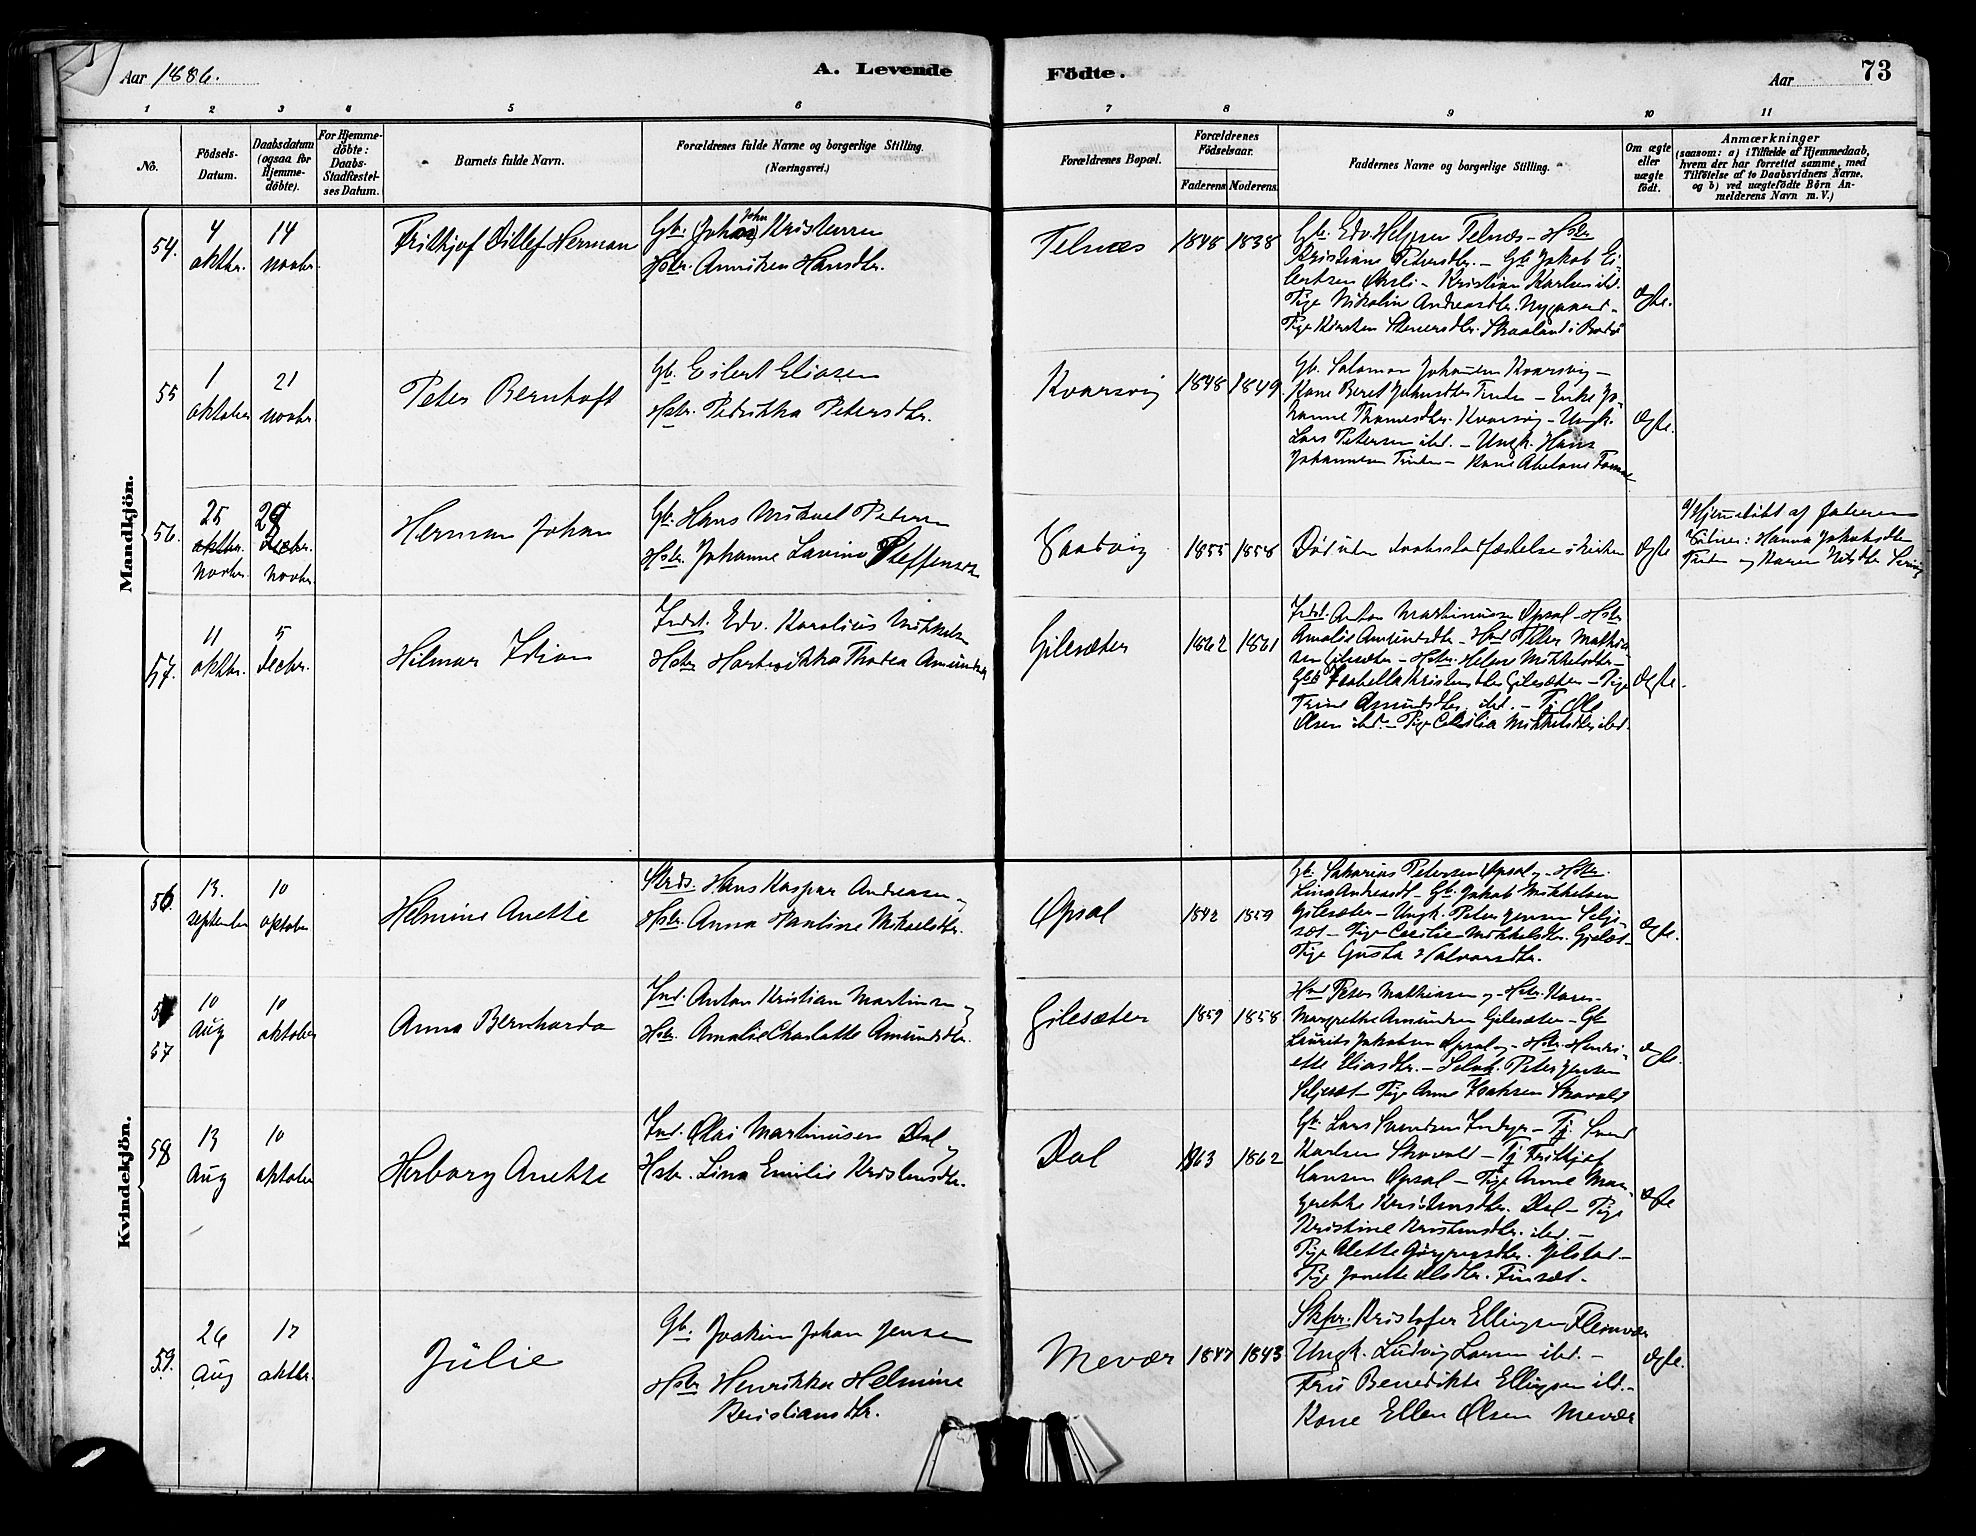 Aar 1886.
A. Levende
Födte.
Aar
73
1 2 3 4 5 6 7 8 9 10 11
No.
Födsels-
Datum.
Daabsdatum
(ogsaa for
Hjemme-
döbte).
For Hjemme-
döbte:
Daabs-
Stadfæstel-
ses Datum.
Barnets fulde Navn.
Forældrenes fulde Navne og borgerlige Stilling.
(Næringsvei.)
Forældrenes Bopæl.
Forældrenes
Födselsaar.
Faderens. Moderens.
Faddernes Navne og borgerlige Stilling.
Om ægte
eller
uægte
födt.
Anmærkninger
(saasom: a) i Tilfælde af Hjemmedaab,
hvem der har forrettet samme, med
Tilföielse af to Daabsvidners Navne.
og b) ved uægtefödte Börn An-
melderens Navn m. V.)
Mandkjön.
54.
4
oktbr.
14
novbr.
Frithjof Ditlef Herman
Gb. (Johan) John Kristensen
Hstr. Anniken Hansdtr.
Telnæs
1848 1838
Gb. Edv. Helgesen Telnæs – Hstr
Kristiane Petersdtr. – Gb Jakob Ei-
lertsen – Kristian Karlsen ibd.
Pige Nikolin Andreasdtr. Nygaard –
Pige Kirsten Skaaland i Bodö
ægte.
55
1
oktober
21
novbr.
Peter Bernhoft
Gb. Eilert Eliasen
Hstr. Petrikka Petersdtr.
Kvarsvig
1848 1849
Gb. Salomon Johansen Kvarsvig –
Kone Beret – Enke Jo-
hanne Thomasdtr. Kvarsvig – Ungk.
Lars Petersen ibd. – Ungk. Hans
Johannesen – Kone Abelone
ægte.
56.
25
oktbr.
novbr.
28
decbr.
novbr.
Herman Johan
Gb. Hans Mikael Petersen
Hstr. Johanne Lavina Steffensen
1855 1858
Död uden daabsstadfæstelse i kirken
ægte
Hjemmedöbt af faderen
Vidner: Hanna Jakobsdtr
og Karen
57.
11
oktbr.
5
decbr.
Hilmar Idian
Indst. Edv. Karolius Mikkelsen
Hstr Hartvikka Thodea Amundsdtr
Gilesæter
1862 1861
Indst. Anton Martinusen Opsal – Hstr
Amalie Amundsdtr – Hmd Peter Mathia-
sen Gilesæter – Hstr. Helene Mikkelsdtr –
Isabella Kristensdtr Gilesæter – Pige
Trine Amundsdtr. ibd. – Tj Ole
Olsen ibd. – Pige Cecilia Mikkelsdtr ibd.
ægte.
Kvindekjön.
56
13.
september
10
oktober
Helmine Anette
Hans Kaspar Andreasen og
Hstr. Anna Pauline Mikaelsdtr.
Opsal
1842 1859
Gb. Sakarias Petersen Opsal og Hstr.
Lina Andreasdtr – Gb. Jakob Mikkelsen
Gilesæter – Ungk. Peter Jensen Selje-
sæt – Pige Cecilie Mikkelsdtr. Gilesæt –
Pige Gusta Halvorsdtr.
ægte.
57
10
Aug
10
oktober
Anna Bernharda
Ind. Anton Kristian Martinsen og
Hstr. Amalie Charlotte Amundsdtr.
Gilesæter
1859 1858
Hmd Peter Mathiasen og Hstr. Karen
Margrethe Amundsen Gilesæter – Gb
Laurits Jakobsen Opsal og Hstr. Henri-
ette Eliasdtr. – Peter Jensen
Seljesæt – Pige Anne Isaksen Skavold
ægte.
58
13
Aug
10
oktober
Herborg Anette
Ind. Olai Martinusen Dal og
Hstr. Lina Emilie Kristensdtr.
Dal
1863 1862
Gb. Lars Svendsen – Tj Svend
Karlsen Skavold – Tj Frithjof
Hansen Opsal – Pige Anne Mar-
grethe Kristensdtr. Dal – Pige
Kristine Kristensdtr. ibd. –
Pige Alette Jörgensdtr. Jelstad –
Pige Janette Finsæt –
ægte
59.
26
Aug
17
oktbr.
Julie
Gb. Joakim Johan Jensen
Hstr Henrikka Helmine
Kristiansdtr.
Mevær
1847 1843
Skpr. Kristofer Ellingsen Fleinvær
Ungk. Ludvig Larsen ibd. –
Fru Benedikte Ellingsen ibd. –
Kone Ellen Olsen Mevær
ægte.